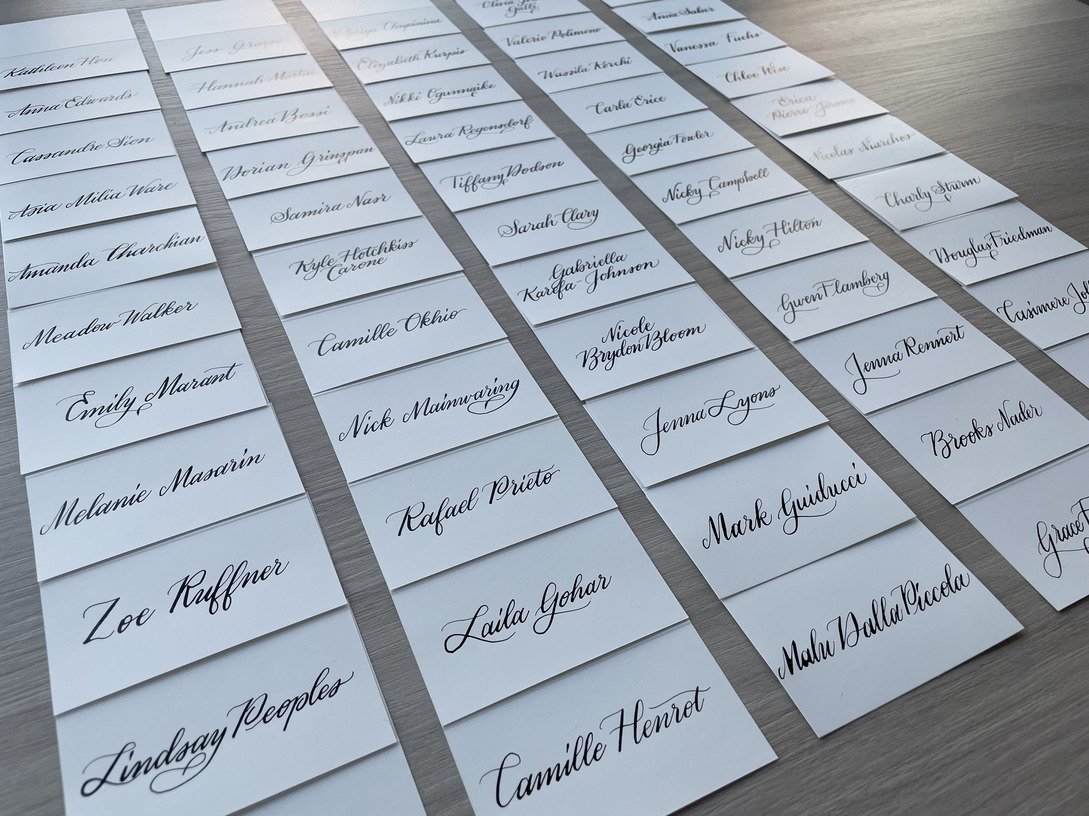 Anna Edwards
Cassandre Sion
Asia Milia Ware
Amanda Charchian
Meadow Walker
Emily Marant
Melanie Masarin
Zoe Ruffner
Lindsay Peoples
Hannah Martin
Andrea Bossi
Dorian Grinspan
Samira Nasr
Kyle Hotchkiss
Carone
Camille Okhio
Nick Mainwaring
Rafael Prieto
Laila Gohar
Camille Henrot
Elizabeth Kurpis
Nikki Ogunnaike
Laura Regensdorf
Tiffany Dodson
Sarah Clary
Gabriella
Karefa-Johnson
Nicole
Brydon Bloom
Jenna Lyons
Mark Guiducci
Malu Dalla Piccola
Valerie Polimeno
Wassila Kerchi
Carla Erice
Georgia Fowler
Nicky Campbell
Nicky Hilton
Gwen Flamberg
Jenna Rennert
Brooks Nader
Grace
Vanessa Fuchs
Chloe Wise
Erica
Pierre-Jerome
Nicolas Niarchos
Charly Sturm
Douglas Friedman
Casimere